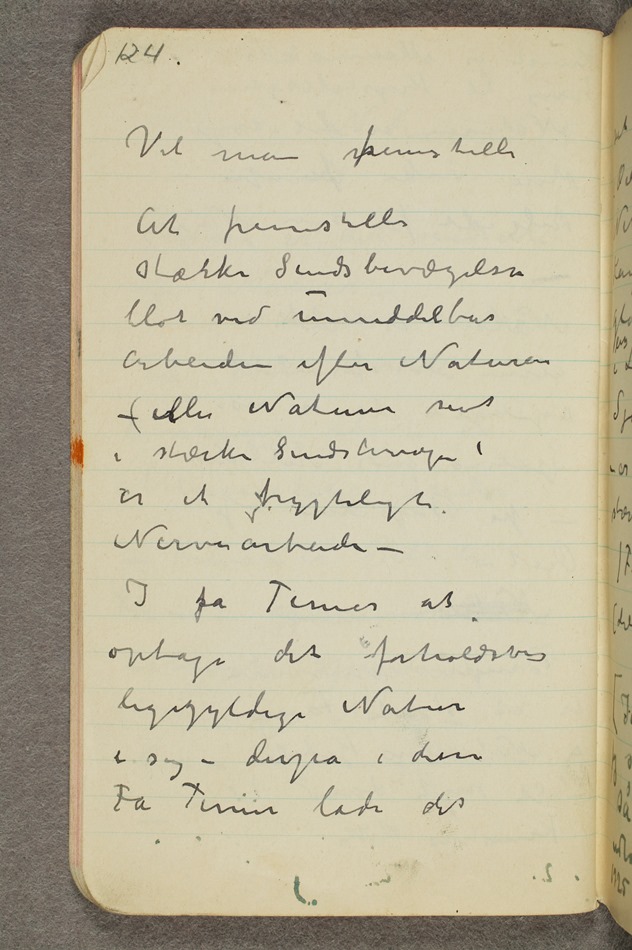 124.
Vil man fremstille
At fremstille
stærke Sindsbevægelser
blot ved umiddelbar
Arbeiden efter Naturen
– (eller Naturen seet
i stærke Sindsbevæge (
er et frygteligt
Nervearbeide –
I fa Timer at
optage det forholdsvis
ligegyldige Natur
i sig – derpa i disse
Fa Timer lade det